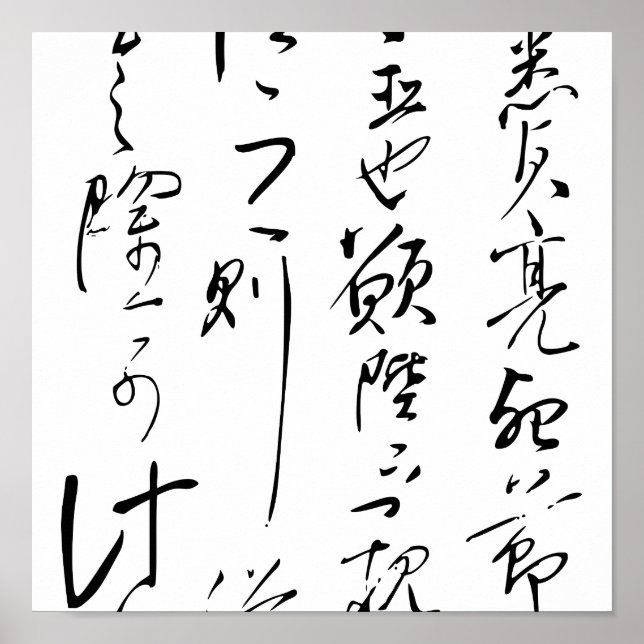 悉貞亮死節
臣也願陛下親
信之則
之隆可計